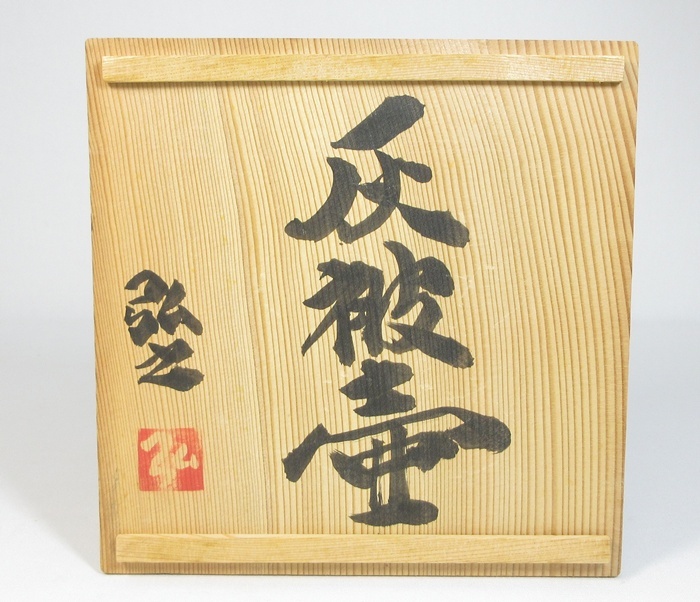 灰被壷
弘之
弘